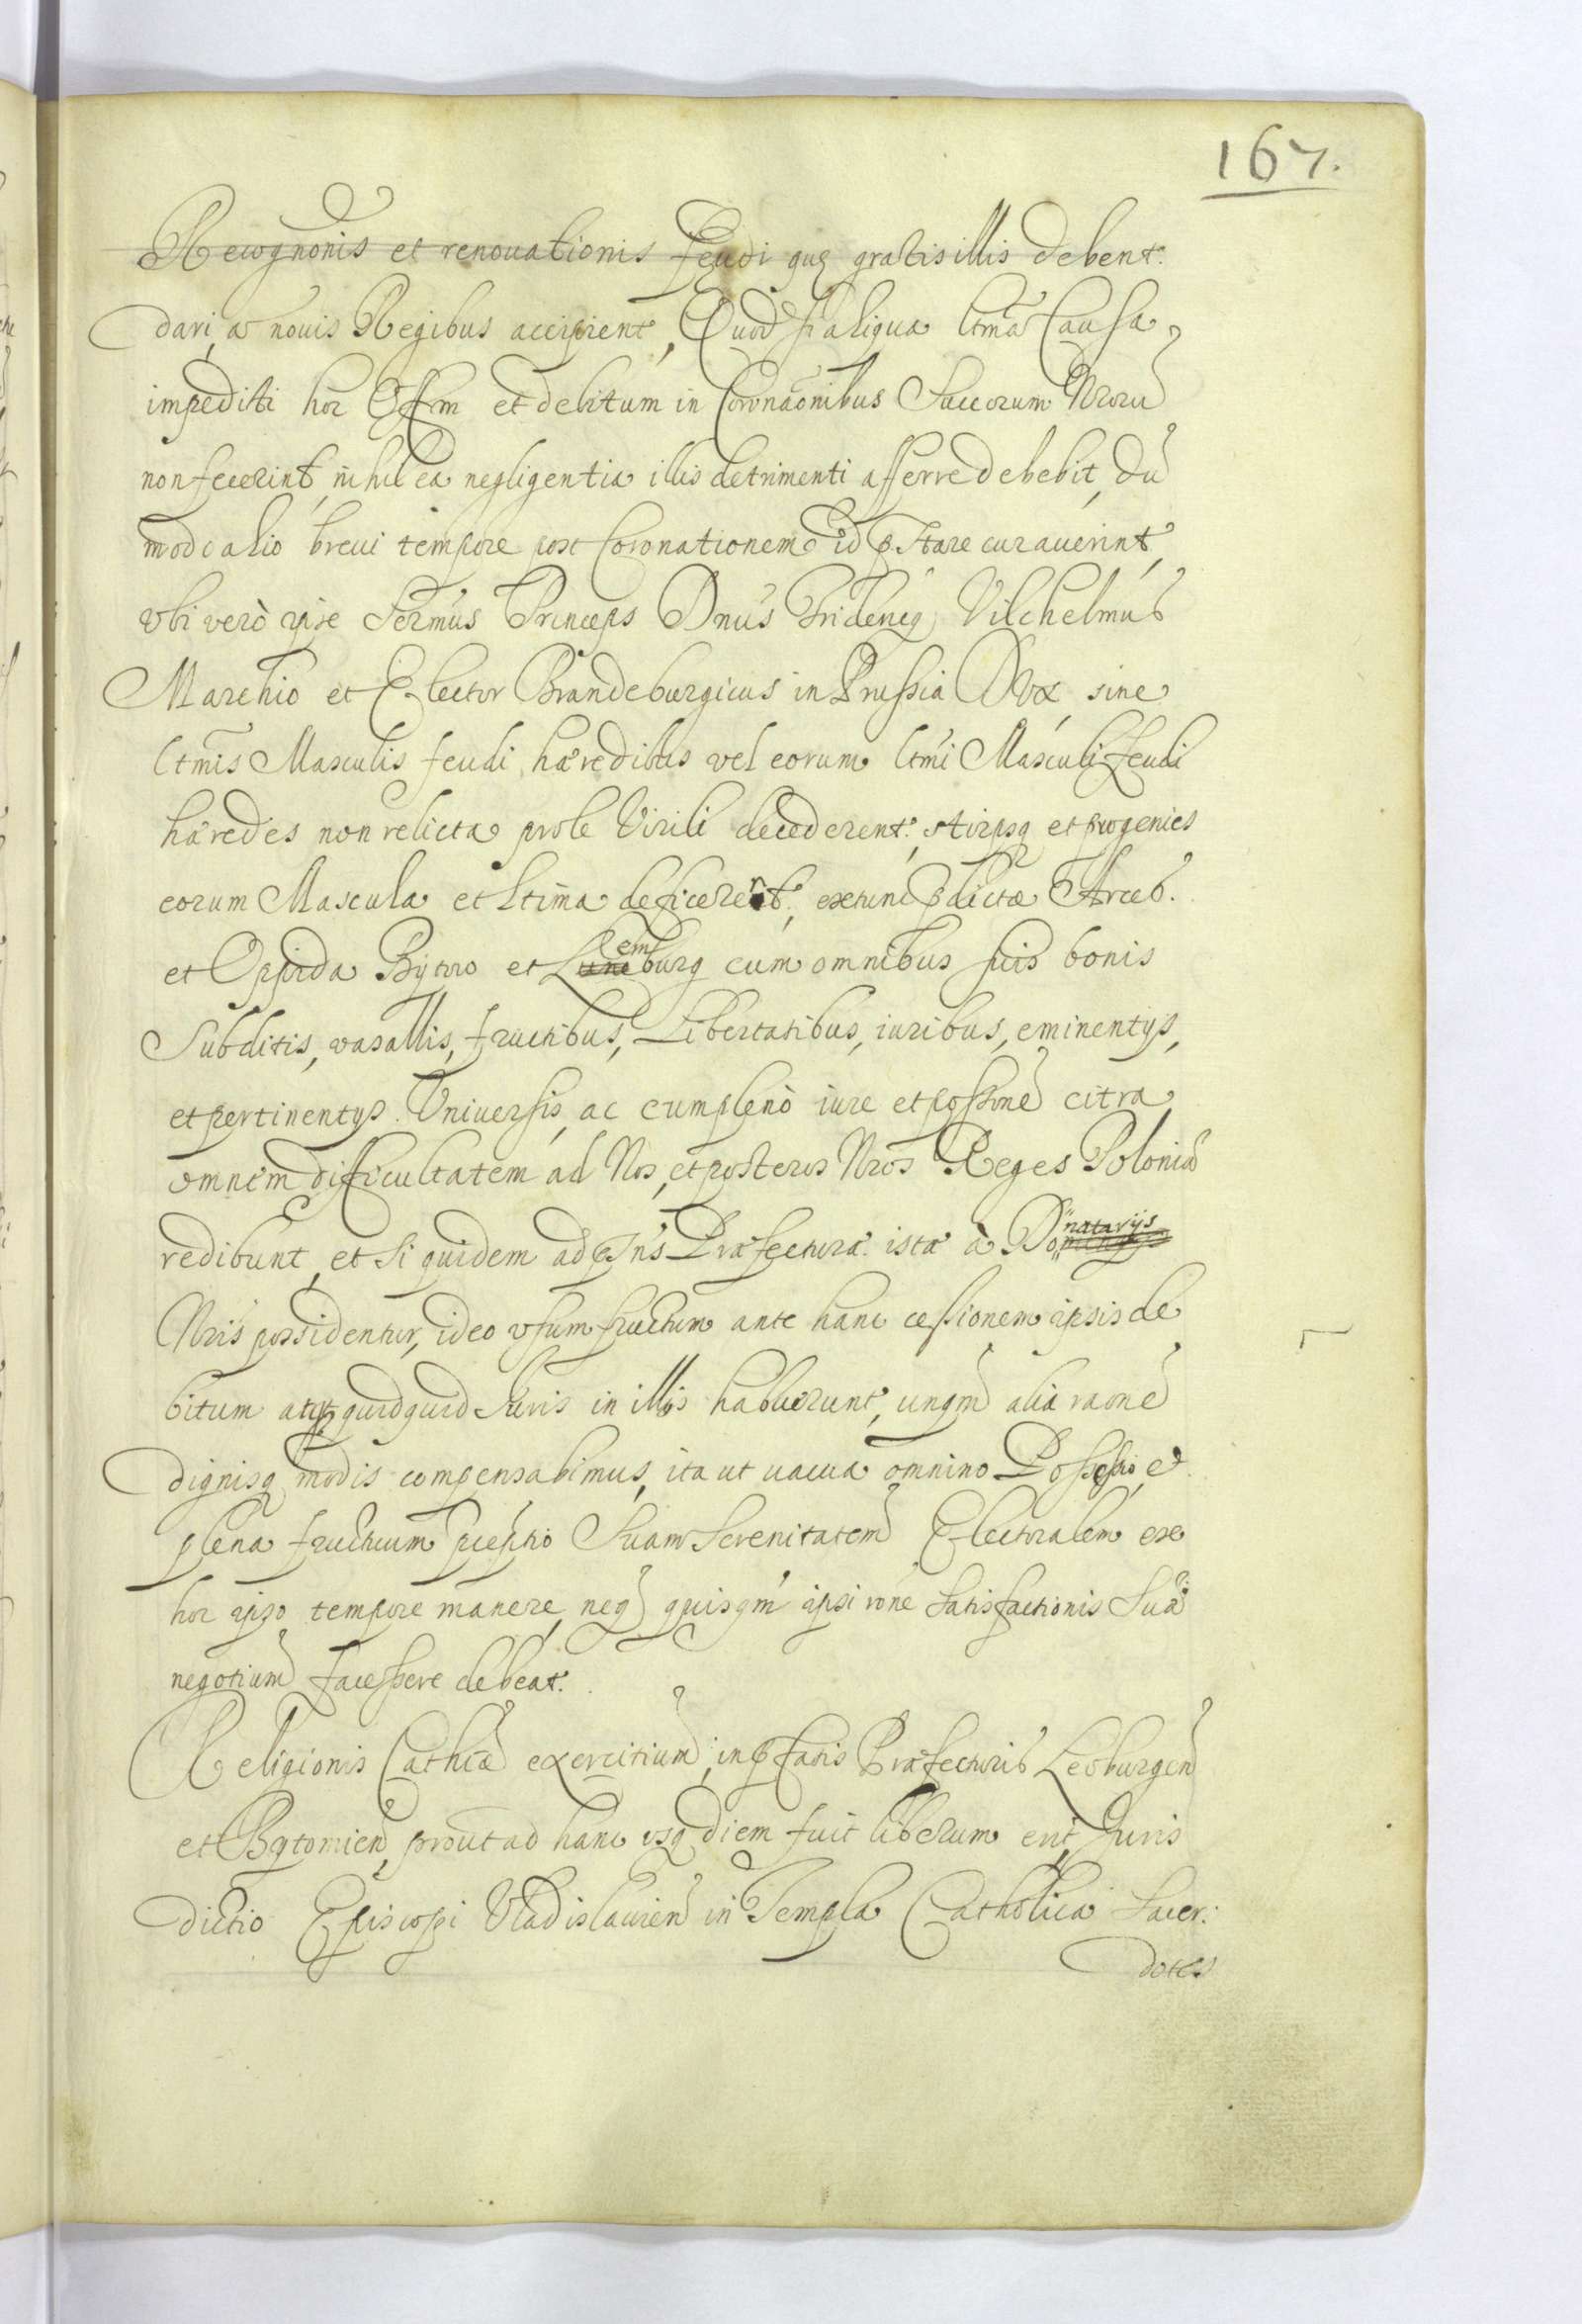 167.
Recognonis et renouationis feudi quę gratis illis debent.
dari, a nouis Regibus accipient, Quod si aliqua ltma Causa,
impediti hoc Offm et debitum in Coronaonibus Succorum Nroru
non fecerint, nihil ea negligentia illis detrimenti afferre debebit, du
modo alio breui tempore post Coronationem id pstare curauerint,
vbi verò ipse Sermus Princeps Dnus Fridericq Vilchelmus
Marchio et Elector Brandeburgicus in Prussia Dux sine
ltmis Masculis feudi hæredibus vel eorum ltmi Masculi feudi
hæredes non relicta prole Virili decederent, stirpsq et progenies
eorum Mascula et ltima deficeret, extunc pdictæ Arces.
et Oppida Bytow et Lemburg cum omnibus suis bonis
Subditis, vasallis, fructibus, Libertatibus, iuribus, eminentys,
et pertinentys Vniuersis, ac cum pleno iure et possone citra
omnem difficultatem ad Nos, et posteros Nros Reges Poloniæ
redibunt, et si quidem ad pns Præfecturæ istæ à Donatarijs
Nris possidentur, ideo vsumfructum ante hanc cessionem ipsis de
bitum atq quidquid Iuris in illis habuerunt, unqm alia raone
dignisq modis compensabimus, ita ut uacua omnino Possessio, et
plena fructuum pceptio Suam Serenitatem Electoralem ex
hoc ipso tempore manere, neq quisqm ipsi rone satisfactionis Suæ
negotium facessere debeat.
Religionis Cathcæ exercitium, in pfatis Præfecturis Leoburgen
et Bytomien, prout ad hanc vsq diem fuit liberum erit, Juris
dictio Episcopi Vladislauien in Templa Catholica Sacer:
dotes